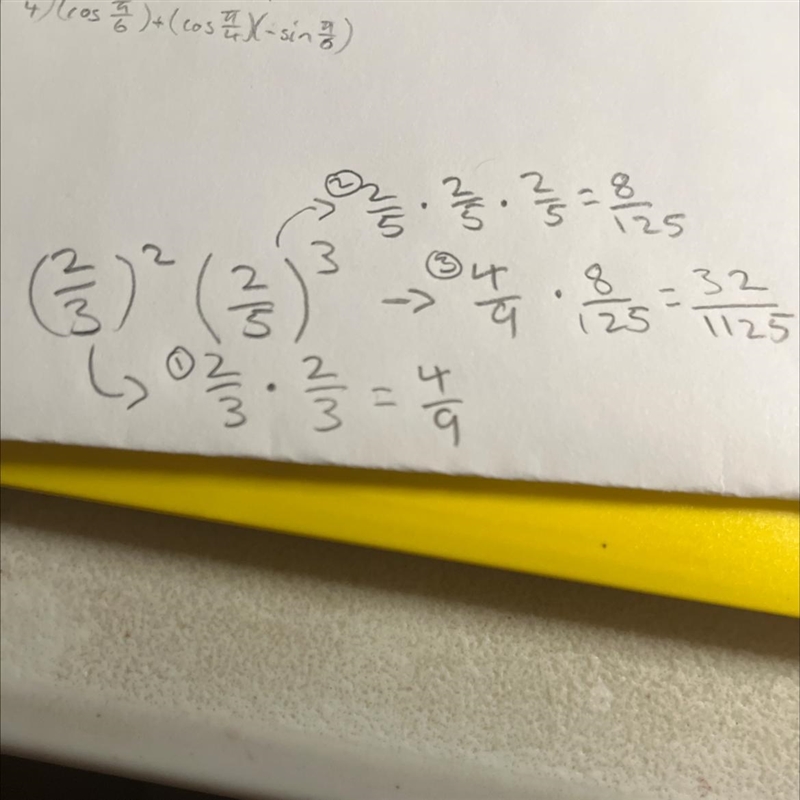 4) (cos π/6) + (cos π/4)(-sin π/6)
② 2/5 · 2/5 · 2/5 = 8/125
(2/3)² (2/5)³ → ③ 4/9 · 8/125 = 32/1125
① 2/3 · 2/3 = 4/9